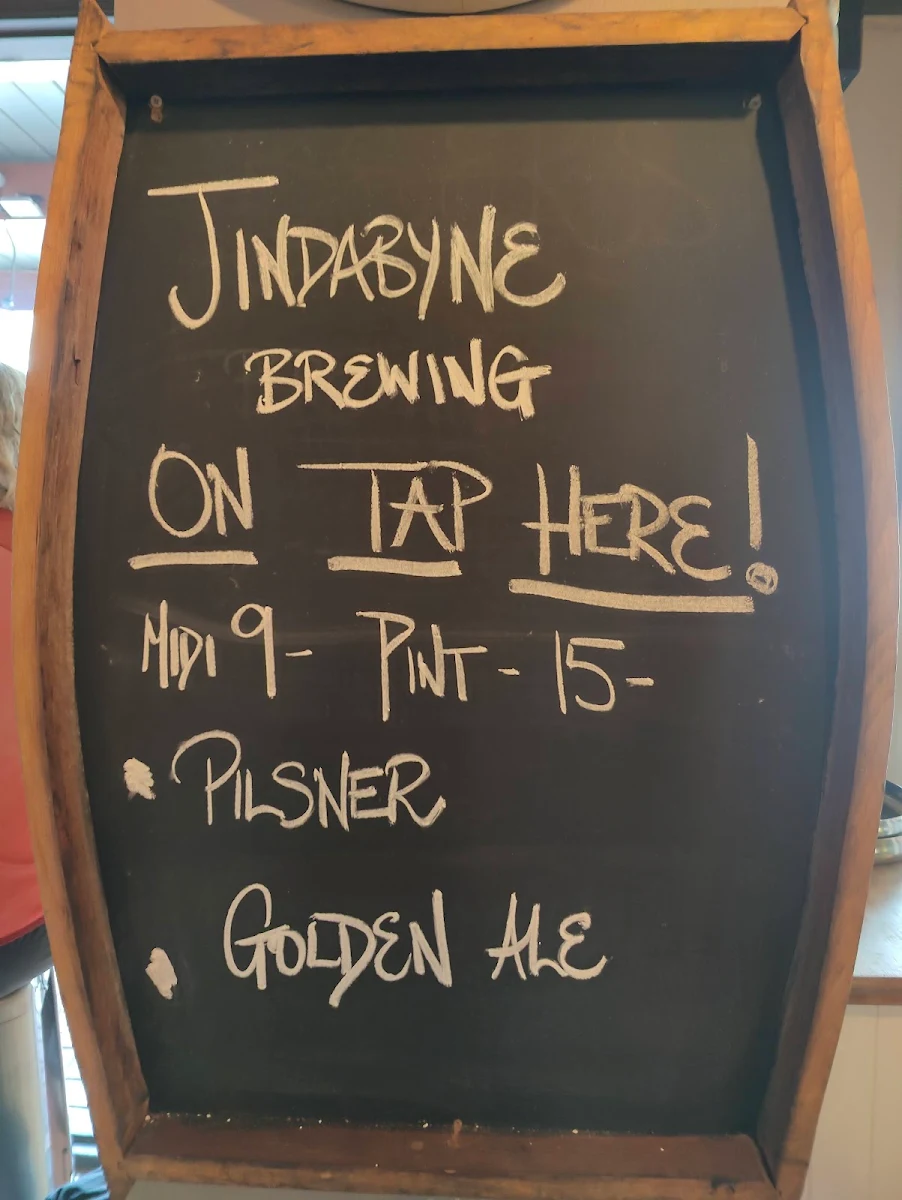 JINDABYNE
BREWING
ON TAP HERE!
MIDI 9- PINT - 15-
• PILSNER
• GOLDEN ALE